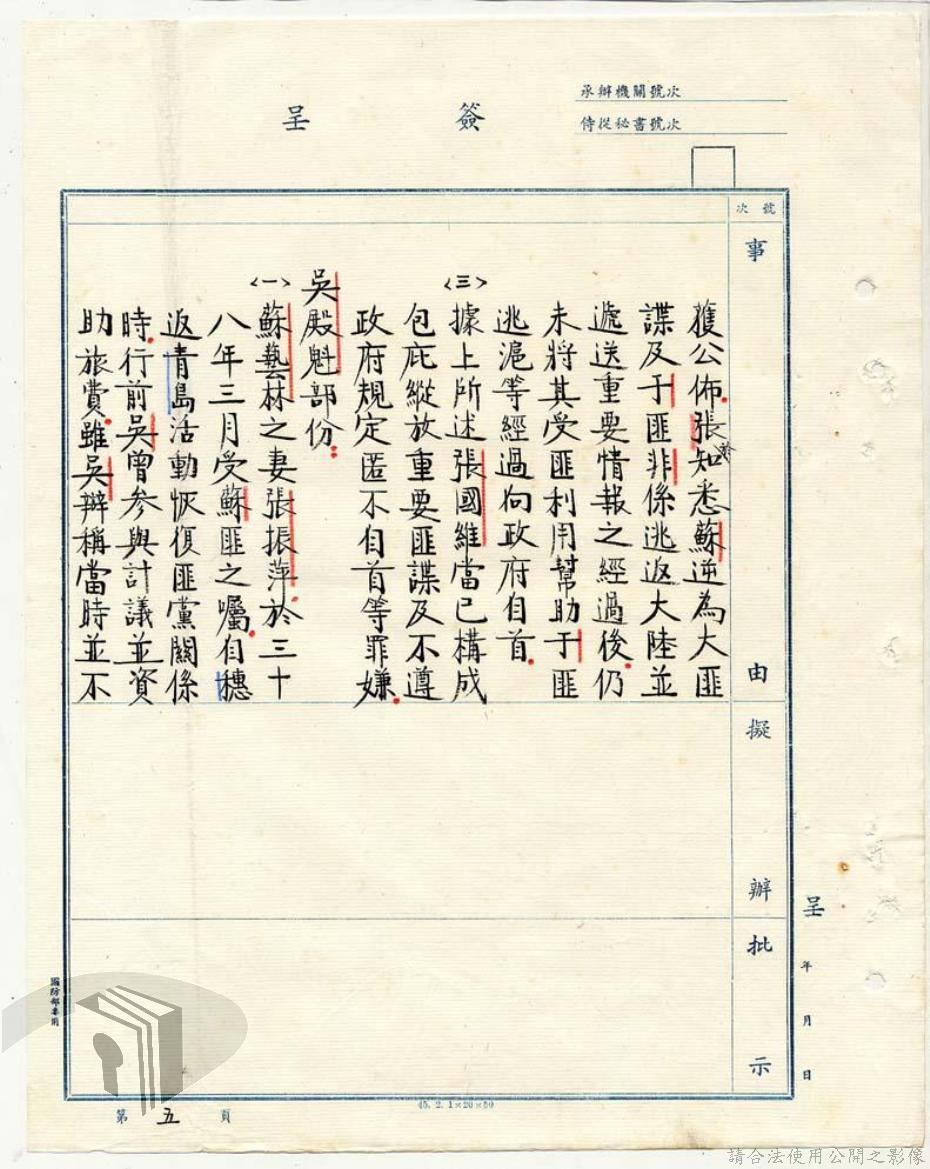 承辦機關號次
侍從秘書號次
簽呈
號次
事由
擬辦
批示
獲公佈張知悉蘇逆為大匪
諜及于匪非係逃返大陸並
遞送重要情報之經過後仍
未將其受匪利用幫助于匪
逃滬等經過向政府自首
〈三〉據上所述張國維當已構成
包庇縱放重要匪諜及不遵
政府規定匿不自首等罪嫌
吳殿魁部份
〈一〉蘇藝林之妻張振萍於三十
八年三月受蘇匪之囑自穗
返青島活動恢復匪黨關係
時行前吳曾參與計議並資
助旅費雖吳辯稱當時並不
呈
年
月
日
國防部專用
45. 2. 1×20×50
第五頁
請合法使用公開之影像